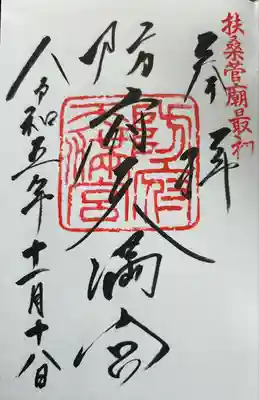 扶桑菅廟最初
奉拝
防府天満宮
防府天満宮
令和五年十一月十八日